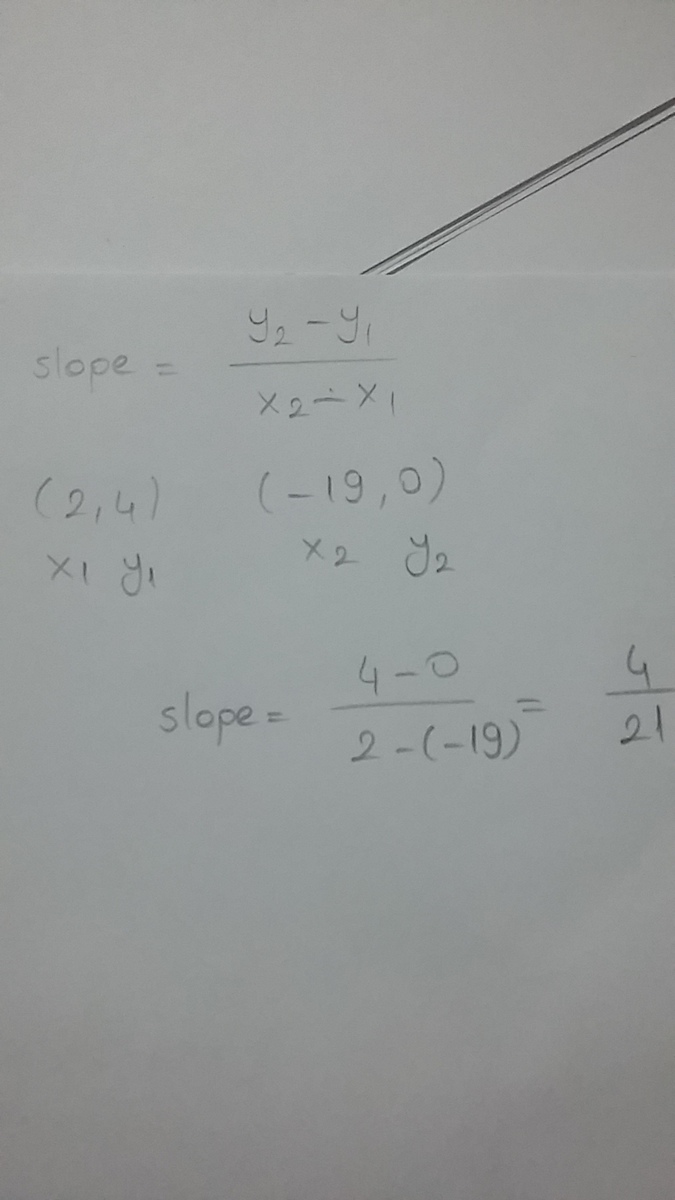 slope = y₂ - y₁ / x₂ - x₁
(2,4) (-19,0)
x₁ y₁ x₂ y₂
slope = 4-0 / 2-(-19) = 4 / 21